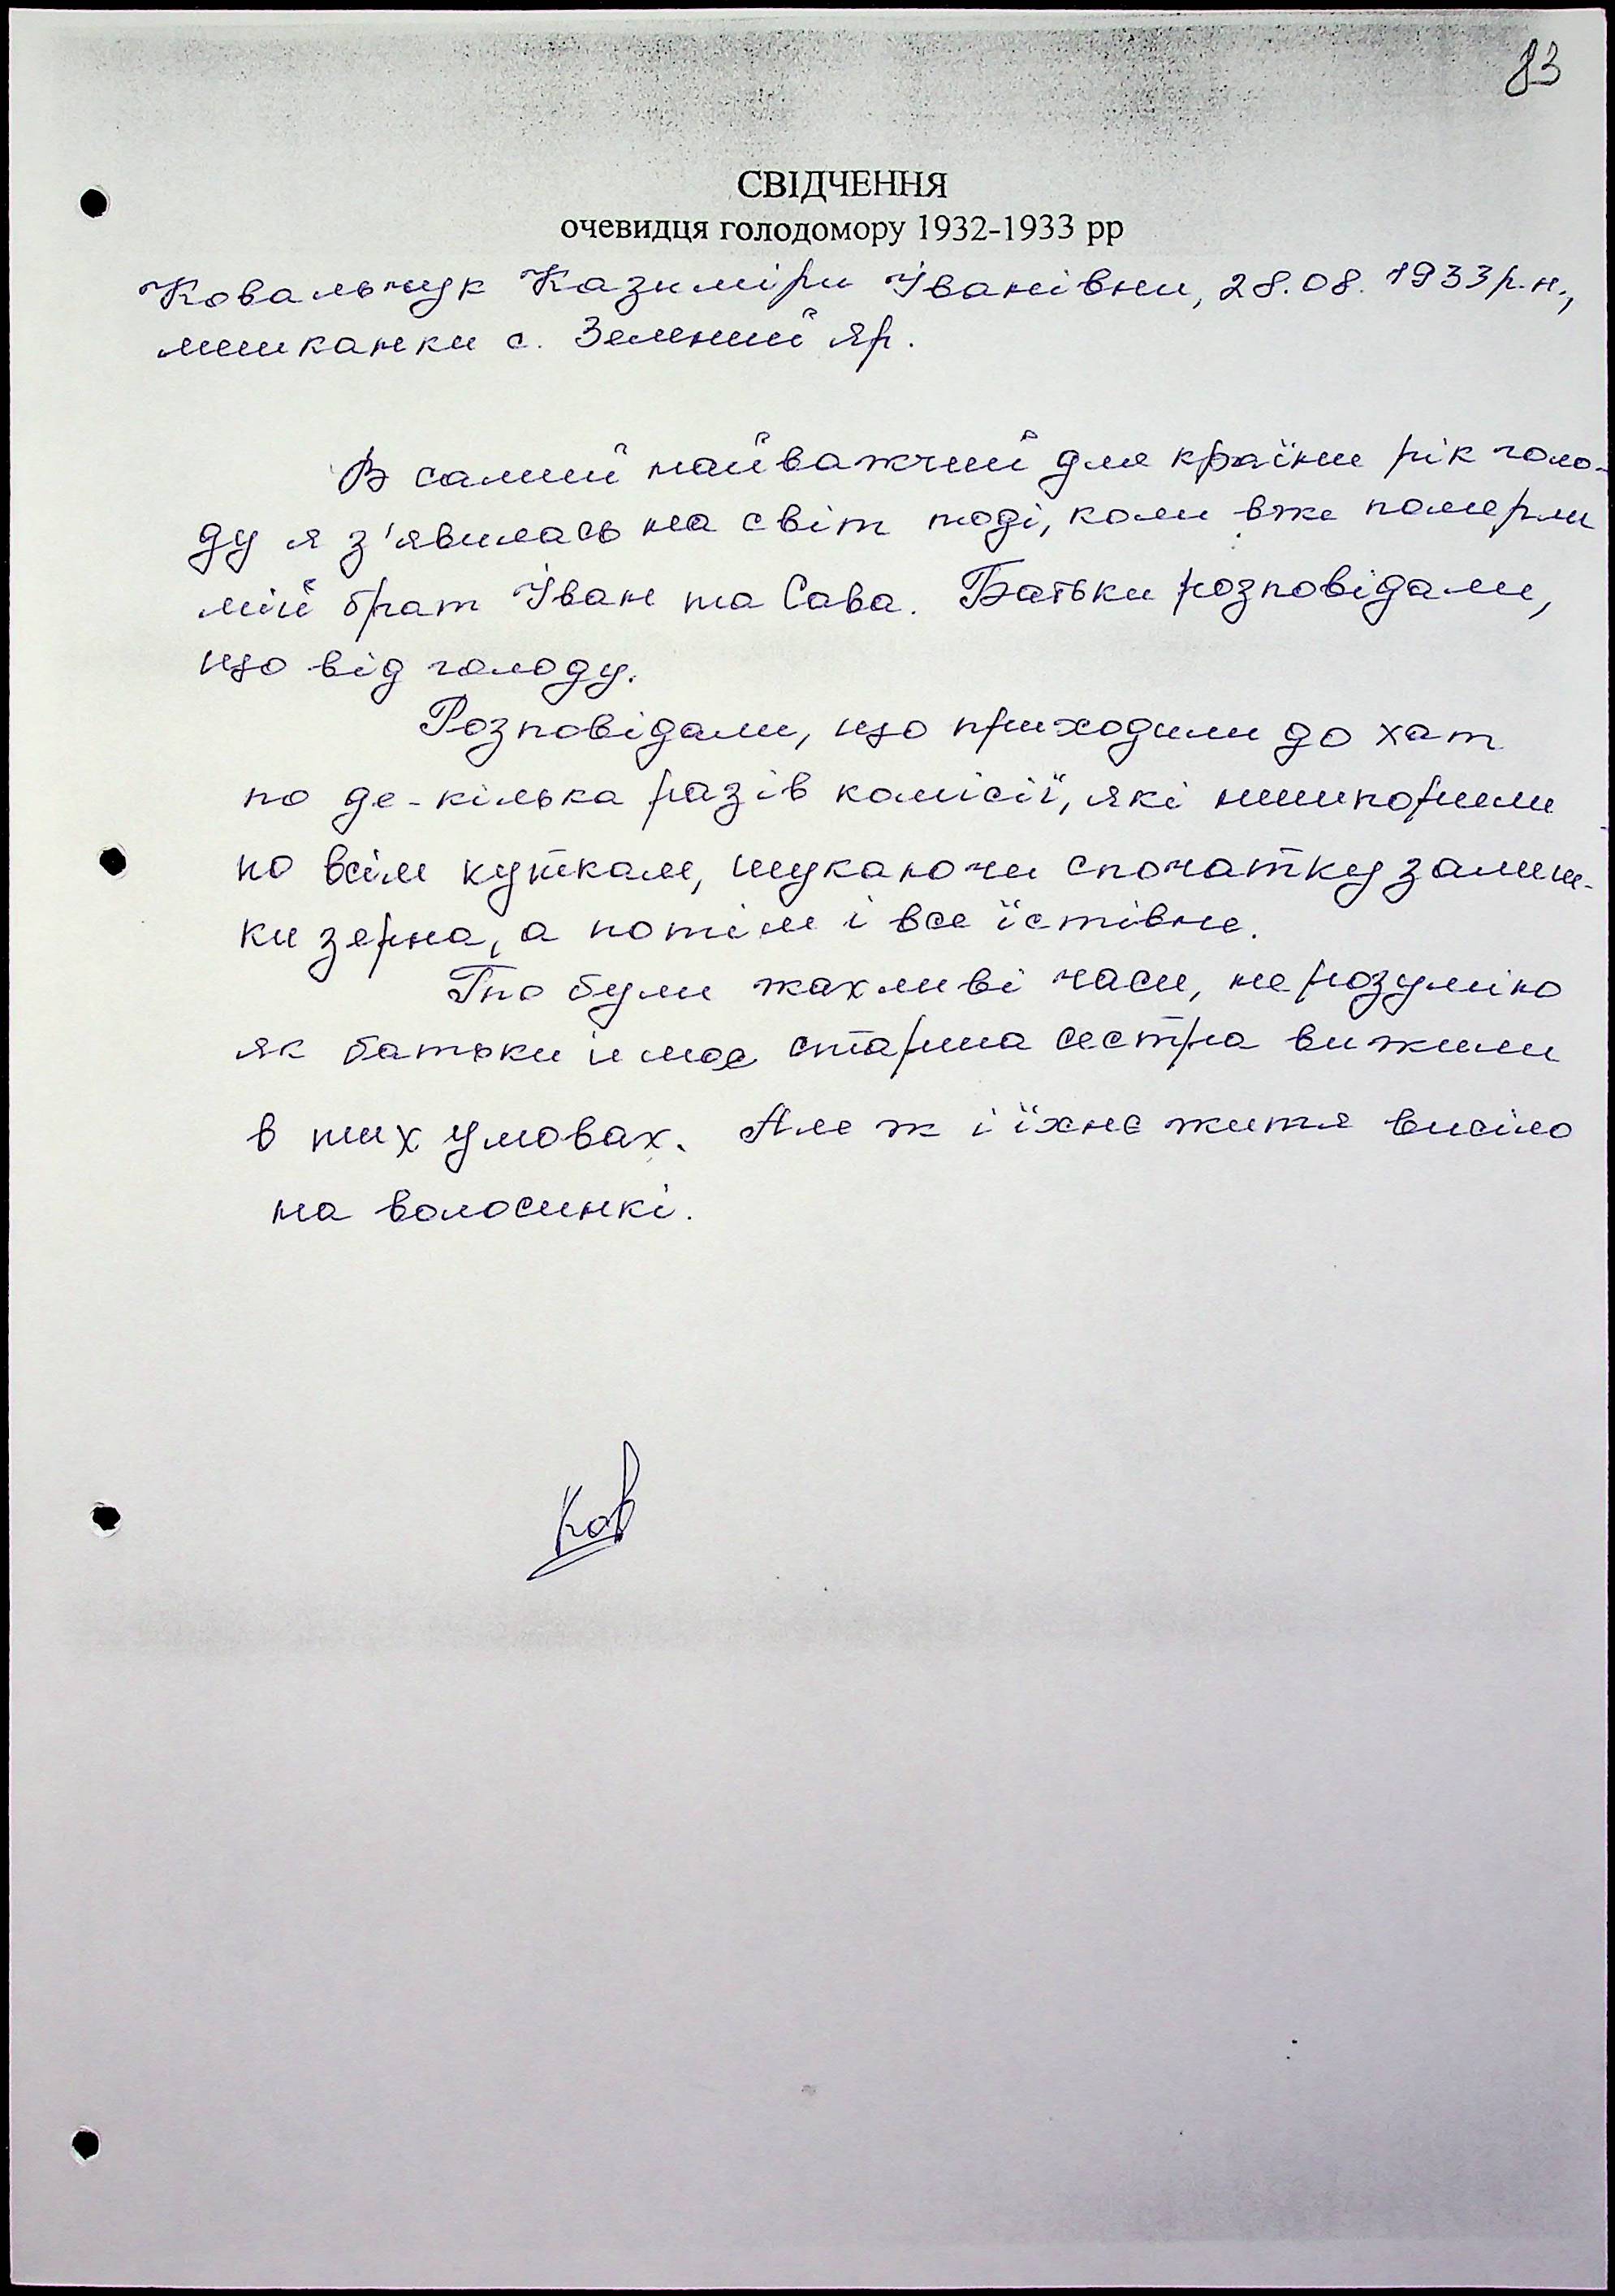 83
СВІДЧЕННЯ
очевидця голодомору 1932-1933 рр
Ковальчук Казиміри Іванівни, 28.08.1933р.н.,
мешканки с. Зелений Яр.
В самий найважчий для країни рік голо-
ду я з'явилась на світ тоді, коли вже померли
мій брат Іван та Сава. Батьки розповідали,
що від голоду.
Розповідали, що приходили до хат
по де-кілька разів комісії, які нишпорили
по всім куткам, шукаючи спочатку залиш-
ки зерна, а потім і все їстівне.
То були жахливі часи, не розуміно
як батьки і моя старша сестра вижили
в тих умовах. Але ж і їхнє життя висіло
на волосинкі.
Ков